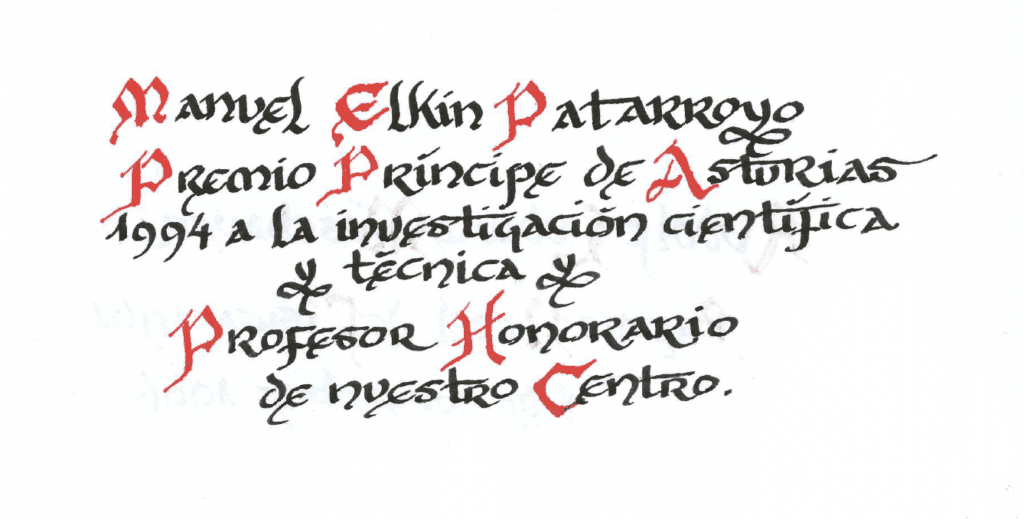 Manuel Elkin Patarroyo
Premio Príncipe de Asturias
1994 a la investigación científica
y técnica y
Profesor Honorario
de nuestro Centro.